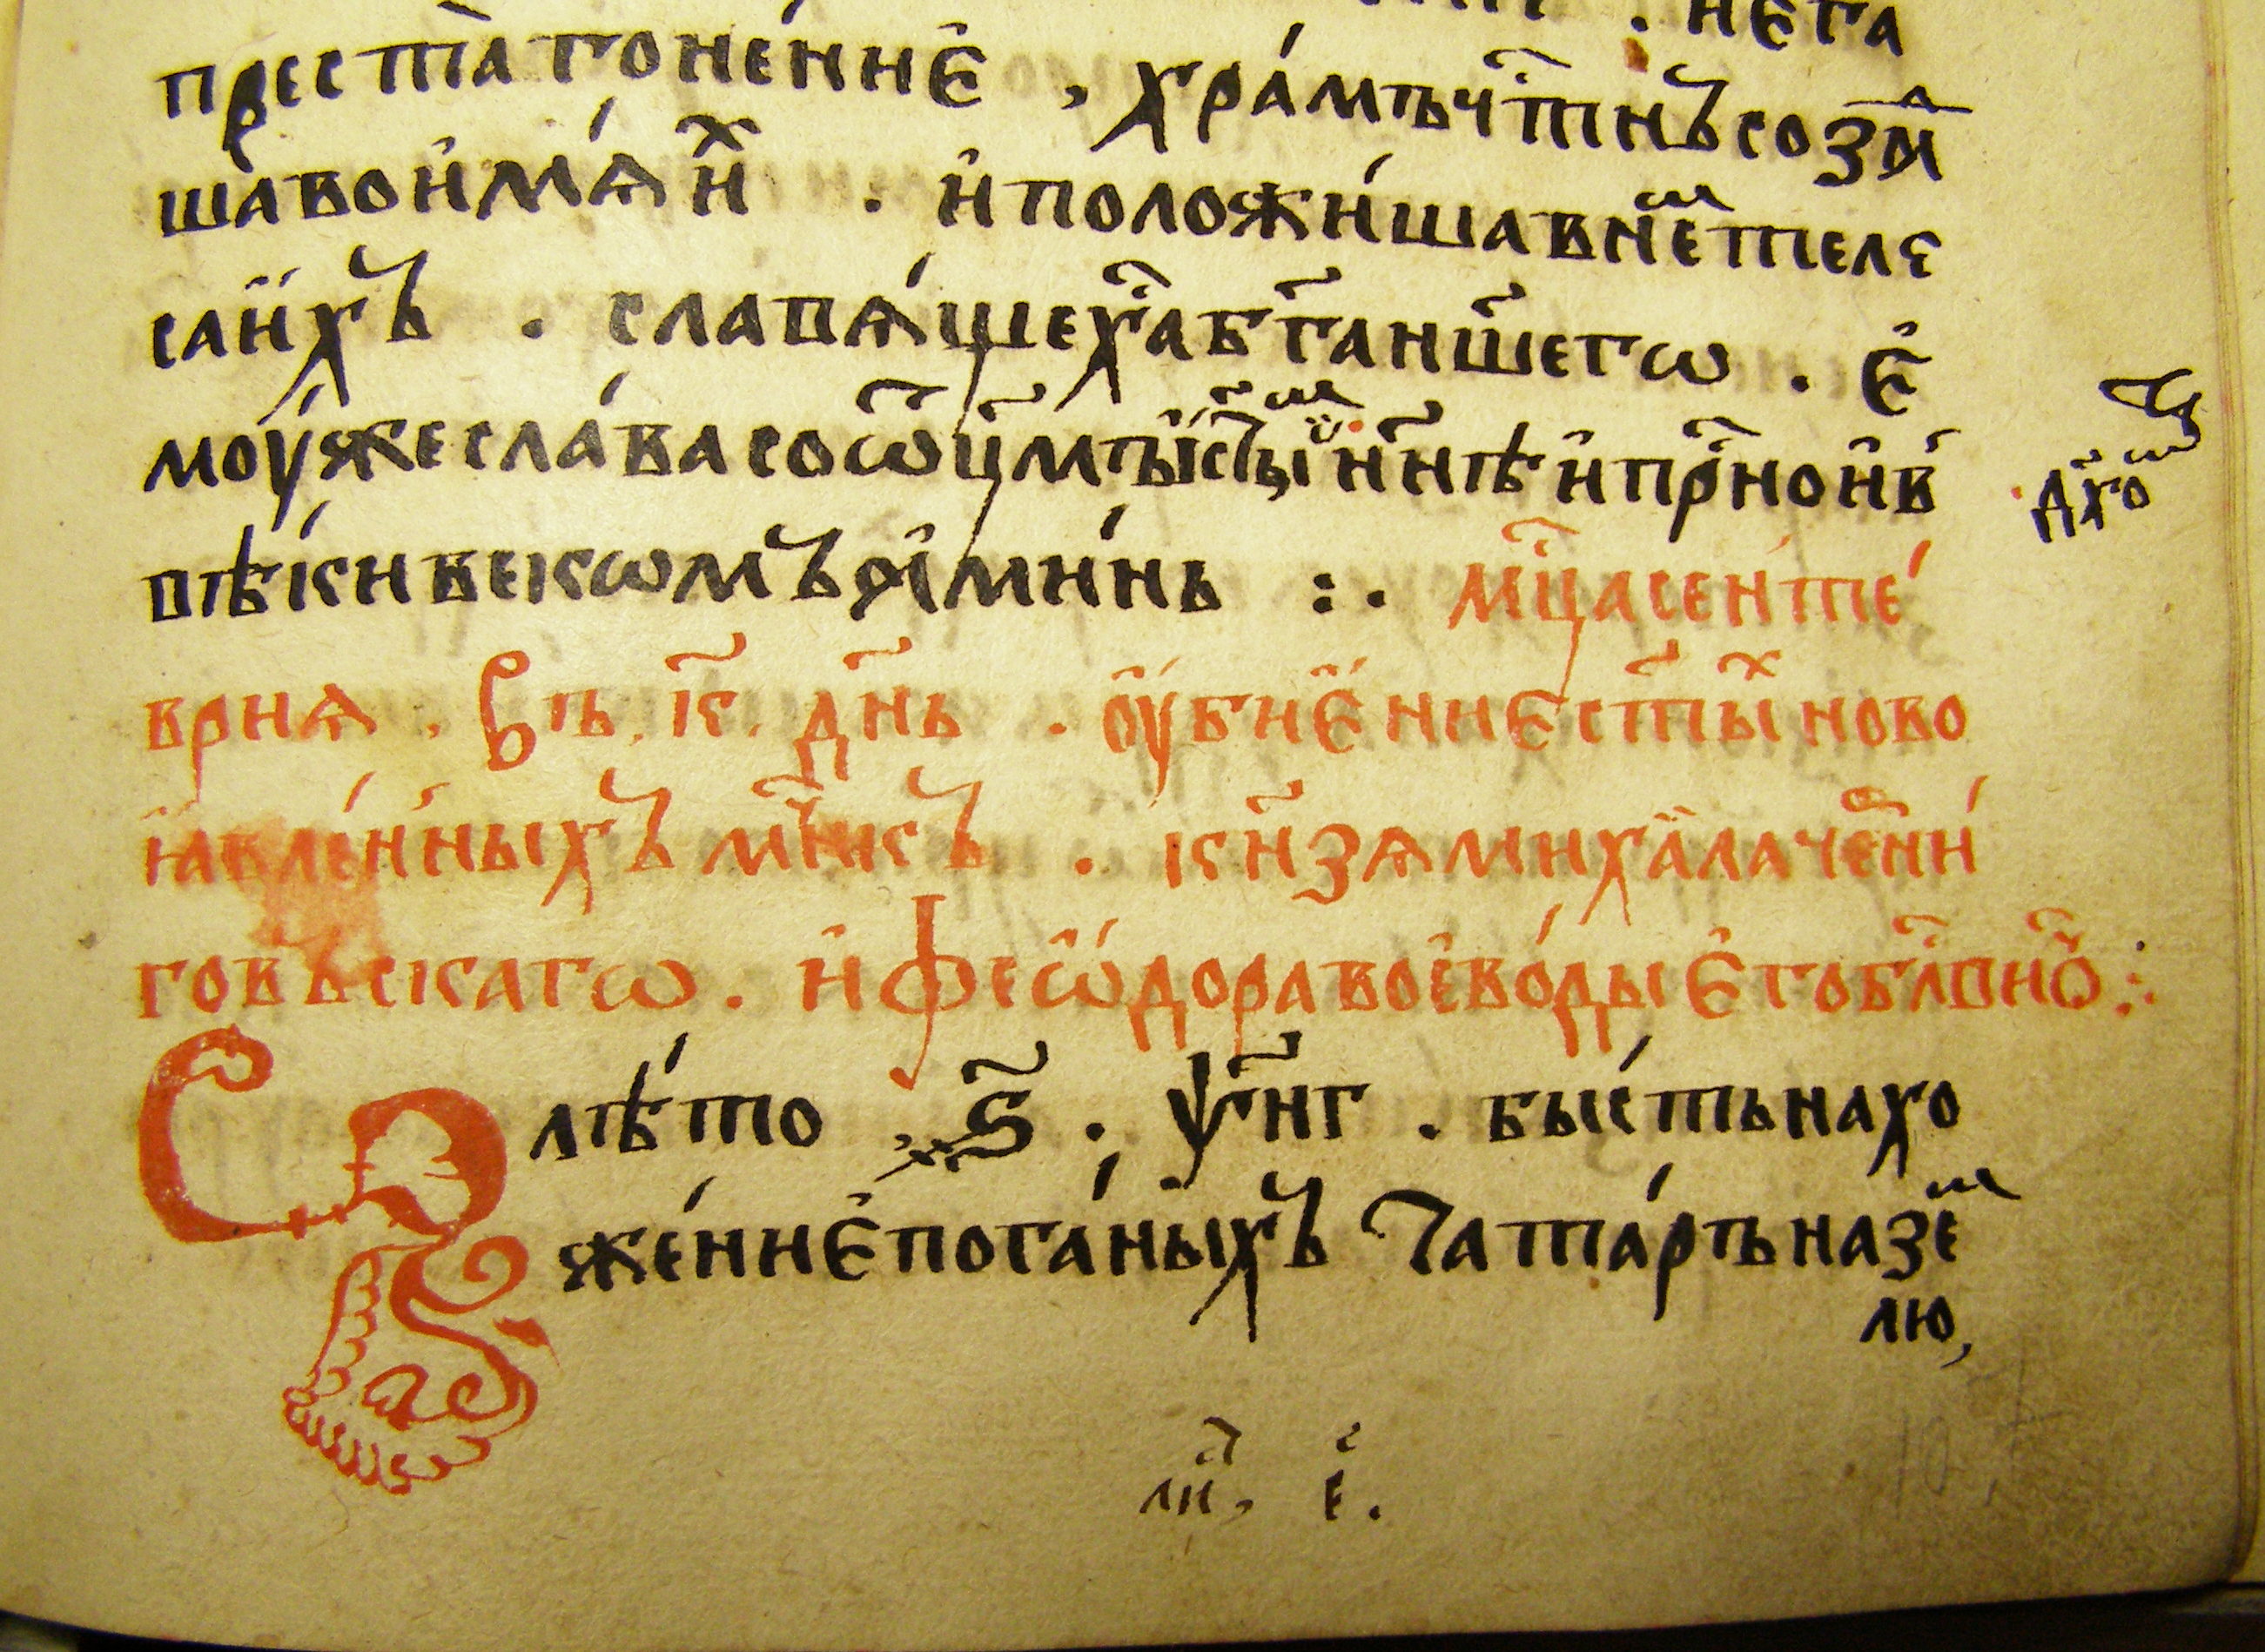 . И҆ єга
преста̀ гоне́ние҆ , хра́мъ чт҃нъ соз̾да
ша во и҆́мѧ и҆х . и҆ положи́ша в не҆м теле
са и҆́хъ . славѧ́ще хр҃а бг҃а нш҃его . є҆
моу́же сла́ва со ѿц҃мъ и ст҃ым нн҃ѣ и҆ прⷭ҇но и҆ в̾
вѣ́ки векѡмъ а҆ми́нь : . мц҃а сен́те́
дх҃ом
врия . въ . к҃ . дн҃ь . оу҆бие҆ние ст҃ых ново
ꙗ҆вле́н́ныхъ мч҃нкъ . кн҃зѧ миха̀ила че́рни
говъскагѡ . и҆ феѡ҆́дора воево́ды є҆го бл҃вио҃ :·
В лѣ́то ҂ѕ҃ . ѱ҃нг . бы́сть нахо
же́ние҆ пога́ныхъ Тата́ръ на зем
лю,
ли, є҃ .